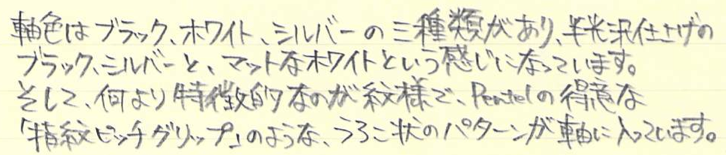 軸色はブラック、ホワイト、シルバーの三種類があり、半光沢仕上げの
ブラック、シルバーと、マットなホワイトという感じになっています。
そして、何より特徴的なのが紋様で、Pentelの得意な
「指紋ピッチグリップ」のような、うろこ状のパターンが軸に入っています。